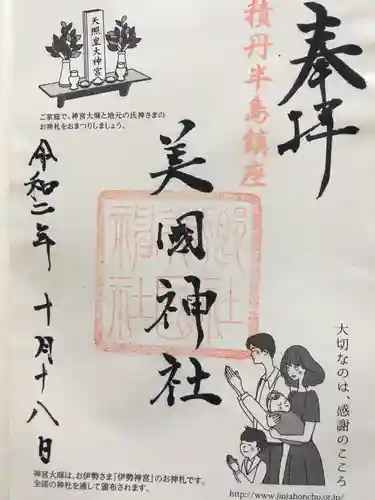 奉拝
積丹半島鎮座
美國神社
令和二年 十月十八日
天照皇大神宮
ご家庭で、神宮大麻と地元の氏神さまの
お神札をおまつりしましょう。
大切なのは、感謝のこころ
神宮大麻は、お伊勢さま「伊勢神宮」のお神札です。
全国の神社を通して頒布されます。
http://www.jinjahoncho.or.jp/